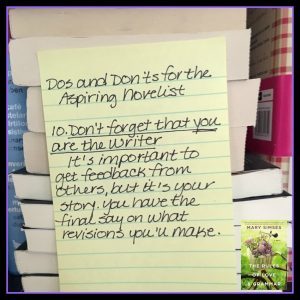 Dos and Don'ts for the
Aspiring Novelist
10. Don't forget that you
are the writer
It's important to
get feedback from
others, but it's your
story. You have the
final say on what
revisions you'll make.
MARY SIMSES
THE RULES
OF LOVE
& GRAMMAR